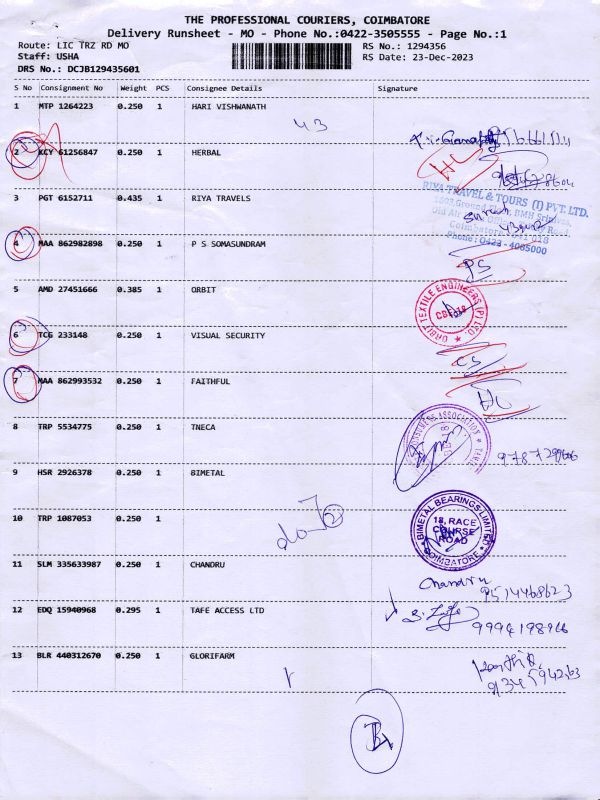 THE PROFESSIONAL COURIERS, COIMBATORE
Delivery Runsheet - MO - Phone No.:0422-3505555 - Page No.:1
Route: LIC TRZ RD MO RS No.: 1294356
Staff: USHA RS Date: 23-Dec-2023
DRS No.: DCJB129435601
S No Consignment No Weight PCS Consignee Details Signature
1 MTP 1264223 0.250 1 HARI VISHWANATH
43
2 KCY 61256847 0.250 1 HERBAL
3 PGT 6152711 0.435 1 RIYA TRAVELS
RIYA TRAVEL & TOURS (I) PVT. LTD.
Phone: 0422 - 4005000
4 MAA 862982898 0.250 1 P S SOMASUNDRAM
PS
5 AMD 27451666 0.385 1 ORBIT
ORBIT TEXTILE ENGINEERS (P) LTD.
6 TCG 233148 0.250 1 VISUAL SECURITY
7 MAA 862993532 0.250 1 FAITHFUL
8 TRP 5534775 0.250 1 TNECA
9 HSR 2926378 0.250 1 BIMETAL
10 TRP 1087053 0.250 1
do
BIMETAL BEARINGS LIMITED
18, RACE
COURSE
ROAD
COIMBATORE
11 SLM 335633987 0.250 1 CHANDRU
Chandru
9514468623
12 EDQ 15940968 0.295 1 TAFE ACCESS LTD
13 BLR 440312670 0.250 1 GLORIFARM